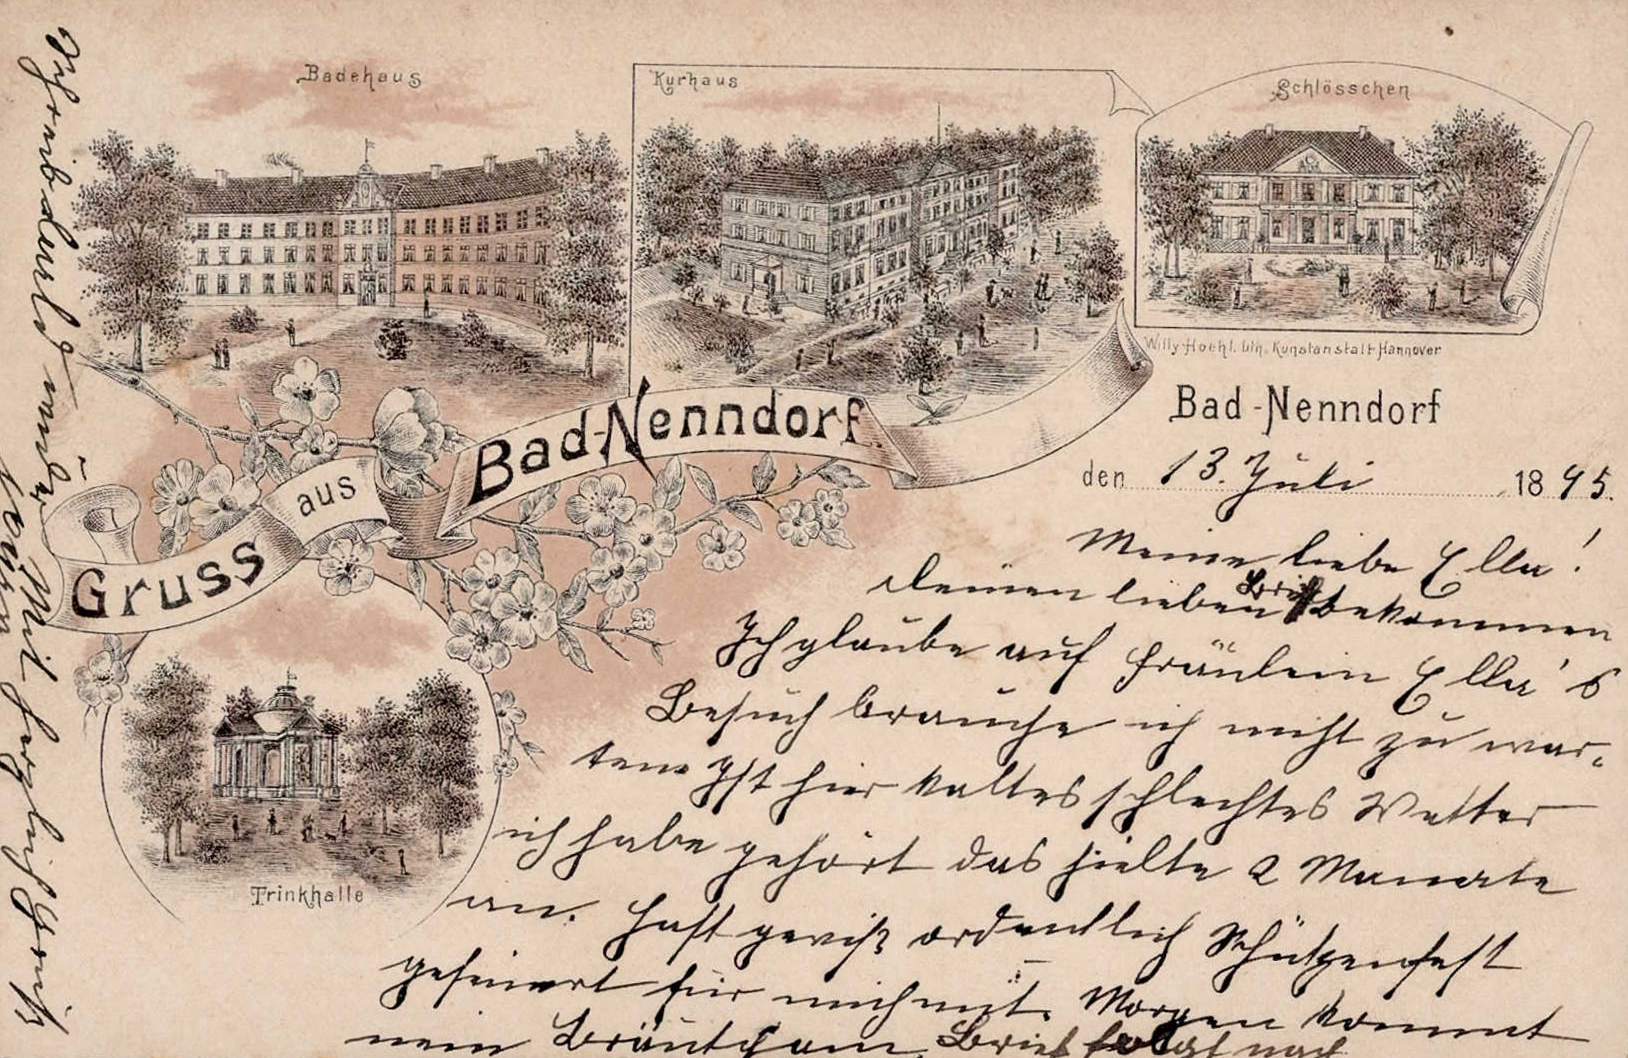 Badehaus
Kurhaus
Schlösschen
Willy Hoehl. lith. Kunstanstalt Hannover
Gruss aus Bad-Nenndorf.
Trinkhalle
Bad-Nenndorf
den 13. Juli 1895.
Meine liebe Ella!
deinen lieben Brief bekommen
Ich glaube auf Fräulein Ella's
Besuch brauche ich nicht zu war-
ten. Ist hier kaltes schlechtes Wetter
ich habe gehört das hielte 2 Monate
an. Hast gewiß ordentlich Schützenfest
gefeiert für mich mit. Morgen kommt
mein Bräutigam. Brief folgt nach
Schreib
Mit herzlich Gruß